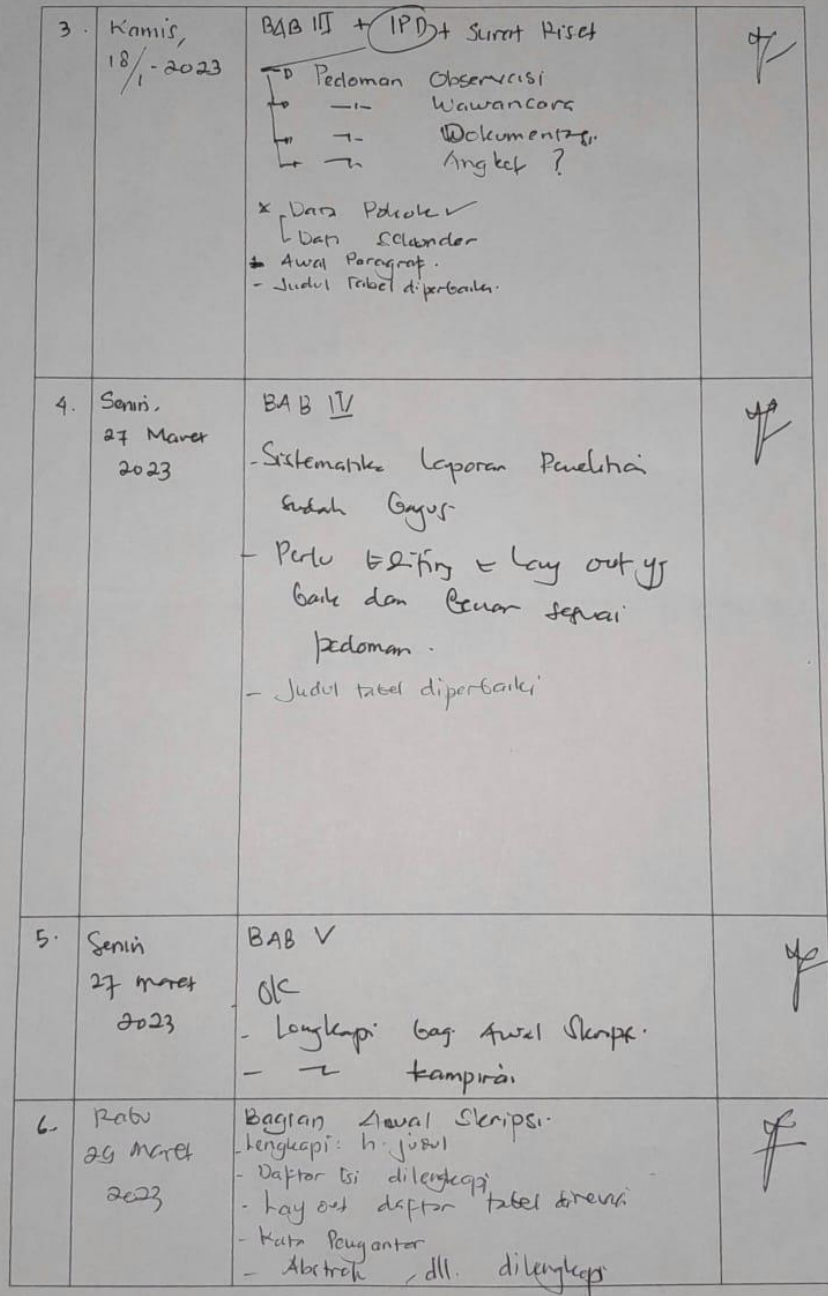 3. Kamis,
18/1-2023
BAB III + IPD + Surat Riset
Pedoman Observasi
-"- Wawancara
-"- Dokumentasi.
-"- Angket ?
* Data Pokok ✓
Data Sekunder
Awal Paragraf.
- Judul Tabel diperbaiki.
4. Senin,
27 Maret
2023
BAB IV
- Sistematika Laporan Penelitian
sudah bagus
- Perlu Editing & Lay out yg
baik dan benar sesuai
pedoman.
- Judul tabel diperbaiki
5. Senin
27 maret
2023
BAB V
OK
- Lengkapi bag. Awal Skripsi.
- -"- Lampiran
6. Rabu
29 Maret
2023
Bagian Awal Skripsi.
- Lengkapi: h. judul
- Daftar Isi dilengkapi
- Lay out daftar tabel direvisi
- Kata Pengantar
- Abstrak, dll. dilengkapi